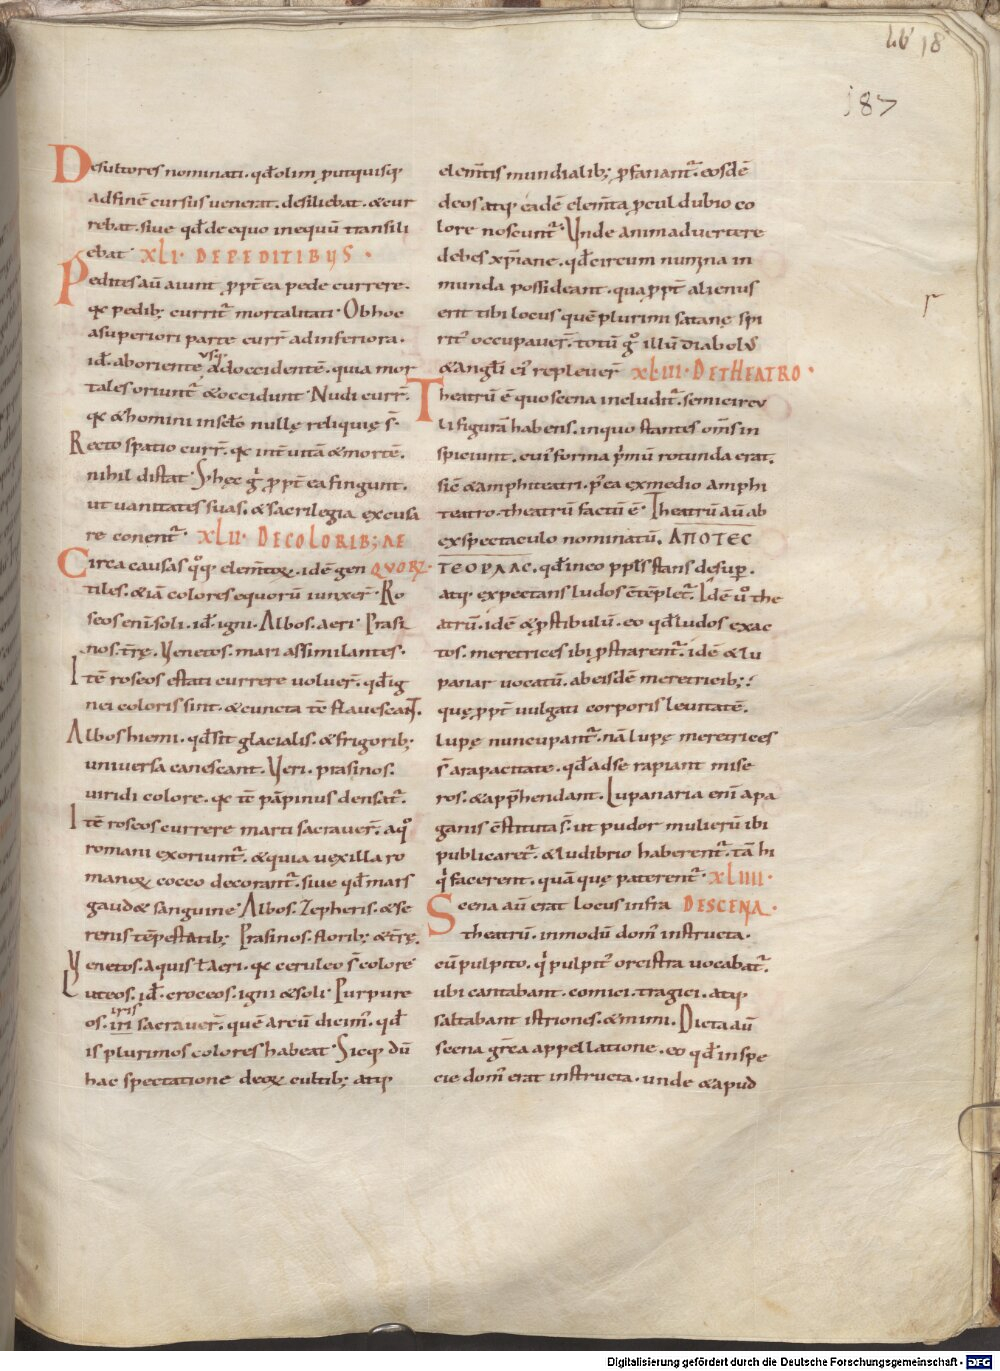 Lib 18
187
Desultores nominati. qđ olim p̱ut quisq;
ad finē cursus uenerat. desiliebat. & cur
rebat. siue qđ de equo in equū transili
ebat· XLI· DE PEDITIBUS·
Pedites aū aiunt ꝓpt̄ ea pede currere.
qc pedib; currit̄ mortalitati· Ob hoc
a superiori parte curr̄ ad inferiora·
id̄. ab oriente usq; ad occidentē. quia mor
tales oriunt̄ & occidunt· Nudi curr̄.
qc & homini in sc̄lo nullę reliquię s̄·
Recto spatio curr̄. qc int̄ uitā & mortē.
nihil distat· S; hęc g̊ ꝓpt̄ ea fingunt.
ut uanitates suas. & sacrilegia excusa
re conent̄· XLII· DE COLORIB; AE
Circa causas qq̊; elem̄toꝝ. idē gen QUORꝝ·
tiles. & iā colores equorū iunxer̄· Ro
seos eni soli. id̄. igni· Albos. aeri· Prasi
nos. t̄rę. Venetos. mari assimilantes·
Itē roseos estati currere uoluer̄. qđ ig
nei coloris sint. & cuncta tē flauescant.
Albos hiemi. qđ sit glacialis. & frigorib;
uniuersa canescant. Veri. prasinos.
uiridi colore. qc tē pāpinus densat̄·
Itē roseos currere marti sacrauer̄. a q̊
romani exoriunt̄. & quia uexilla ro
manoꝝ cocco decorant̄. siue qđ mars
gaud& sanguine· Albos. Zepheris. & se
renis tēpestatib; Prasinos. florib; & t̄rę.
Venetos. aquis ł aeri. qc ceruleo s̄ colore·
Luteos. id̄. croceos. igni & soli· Purpure
os. iri iris sacrauer̄. quē arcū dicim̄. qđ
is plurimos colores habeat· Sicq; dū
hac spectatione deoꝝ cultib; atq;
elem̄tis mundialib; ꝓfanant̄. eosdē
deos atq; eadē elem̄ta ꝓcul dubio co
lore noscunt̄· Unde animaduertere
debes xp̄iane. qđ circum nun;na in
munda possideant. qua ꝓpt̄ alienus
erit tibi locus quē plurimi satanę spi
rit̄ occupauer̄. totū g̊ illū diabolꝰ
& angl̄i eī repleuer̄· XLIII· DE THEATRO·
Theatrū ē quo scena includit̄. semicircu
li figurā habens. in quo stantes om̄s in
spiciunt. cuī forma p̄mū rotunda erat.
sic̄ & amphiteatri. p̄ea ex medio amphi
teatro. theatrū factū ē· Theatrū aū ab
ex spectaculo nominatū. ΑΠΟΤΕC
ΤΕΟΡΛΑC. qđ in eo ppl̄s stans desup̱.
atq; expectans ludos c̄tēplet̄. Idē ů the
atrū. idē & ꝓstibulū. eo qđ ludos exac
tos. meretrices ibi ꝓstrarent̄. idē & lu
panar uocatū. ab eisdē meretricib;·
quę ꝓpt̄ uulgati corporis leuitatē.
lupę nuncupant̄. nā lupę meretrices
s̄ a rapacitate. qđ ad se rapiant mise
ros. & app̄hendant. Lupanaria eni a pa
ganis c̄stituta s̄. ut pudor mulierū ibi
publicaret̄. & ludibrio haberent̄. tā hi
q̊ facerent. quā quę paterent̄· XLIIII·
Scena aū erat locus infra DE SCENA·
theatrū. in modū domī instructa·
cū pulpito. q̊ pulpit̄ orcistra uocabat̄.
ubi cantabant. comici. tragici. atq;
saltabant istriones. & mimi. Dicta aū
scena gr̄ca appellatione. eo qđ in spe
cie domī erat instructa. unde & apud
r
Digitalisierung gefördert durch die Deutsche Forschungsgemeinschaft - DFG